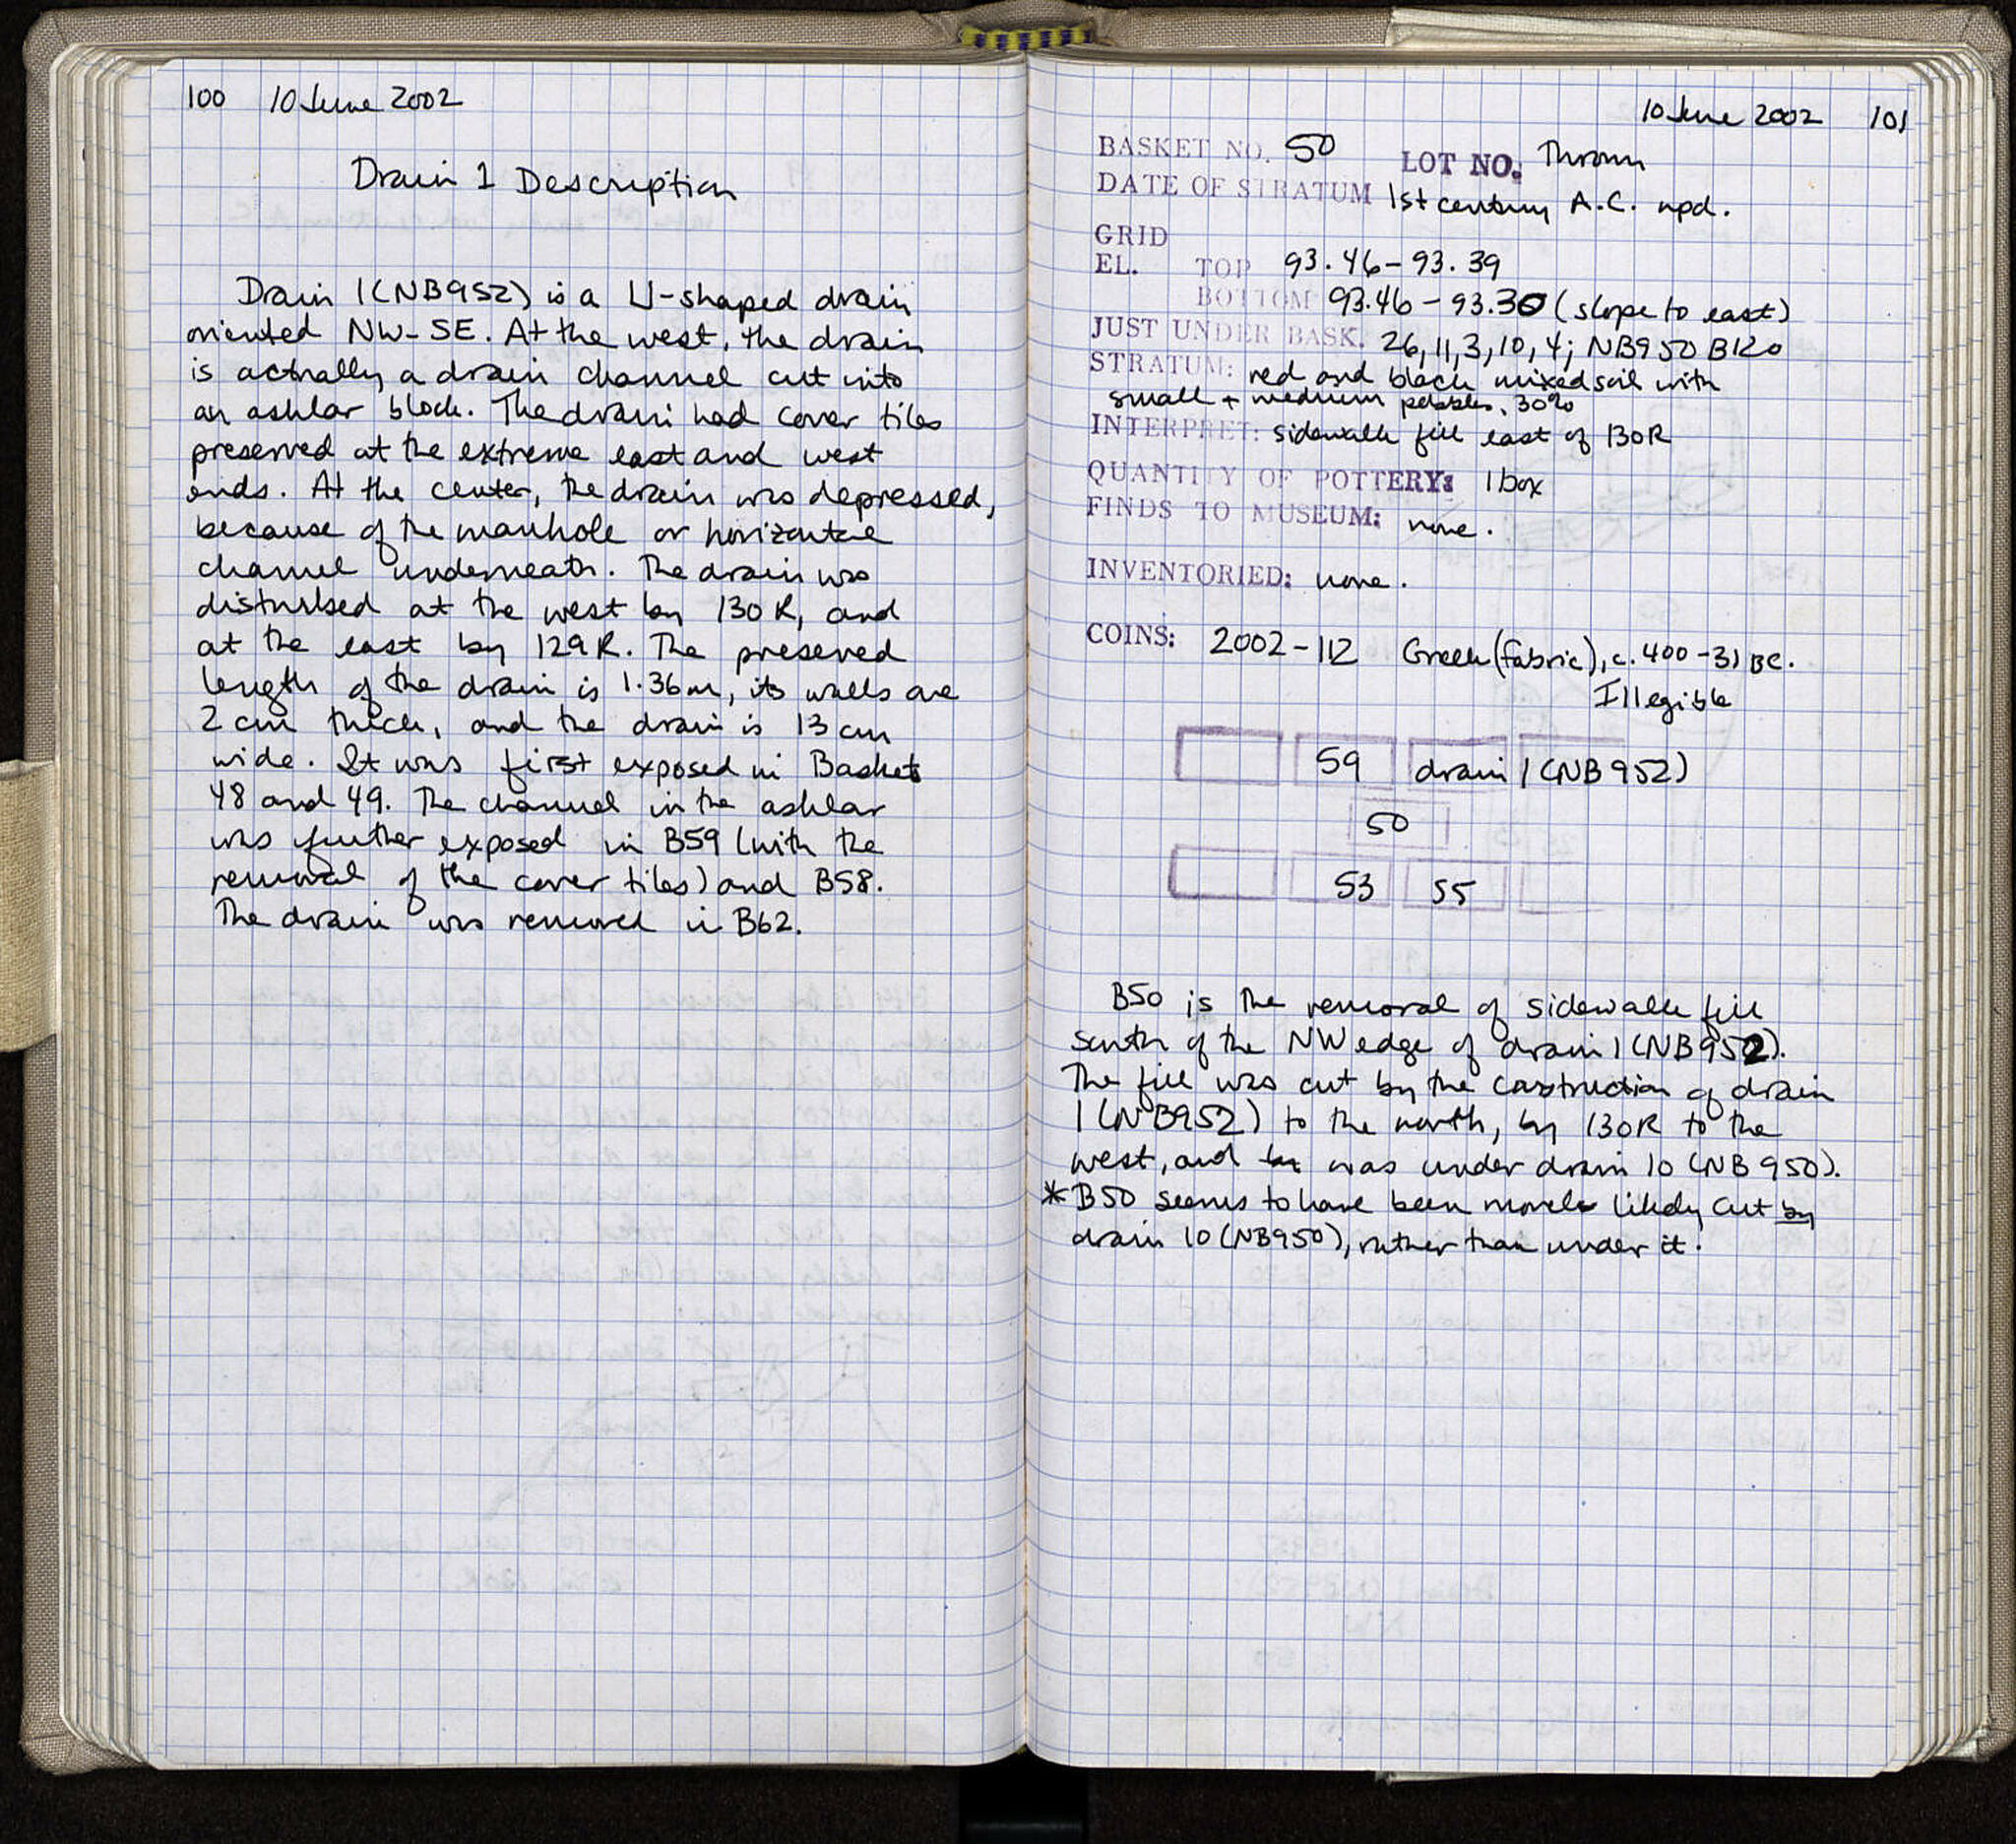 100 10 June 2002
Drain 1 Description
Drain 1 (NB952) is a U-shaped drain
oriented NW-SE. At the west, the drain
is actually a drain channel cut into
an ashlar block. The drain had cover tiles
preserved at the extreme east and west
ends. At the center, the drain was depressed,
because of the manhole or horizontal
channel underneath. The drain was
disturbed at the west by 130R, and
at the east by 129R. The preserved
length of the drain is 1.36m, its walls are
2 cm thick, and the drain is 13 cm
wide. It was first exposed in Baskets
48 and 49. The channel in the ashlar
was further exposed in B59 (with the
removal of the cover tiles) and B58.
The drain was removed in B62.
10 June 2002 101
BASKET NO. 50 LOT NO. Thrown
DATE OF STRATUM 1st century A.C. npd.
GRID
EL. TOP 93.46-93.39
BOTTOM 93.46-93.30 (slope to east)
JUST UNDER BASK. 26, 11, 3, 10, 4; NB950 B120
STRATUM: red and black mixed soil with
small + medium pebbles, 30%
INTERPRET: sidewalk fill east of 130R
QUANTITY OF POTTERY: 1 box
FINDS TO MUSEUM: none.
INVENTORIED: none.
COINS: 2002-112 Greek (fabric), c. 400-31 BC.
Illegible
59 drain 1 (NB952)
50
53 55
B50 is the removal of sidewalk fill
south of the NW edge of drain 1 (NB952).
The fill was cut by the construction of drain
1 (NB952) to the north, by 130R to the
west, and was under drain 10 (NB950).
* B50 seems to have been more likely cut by
drain 10 (NB950), rather than under it.